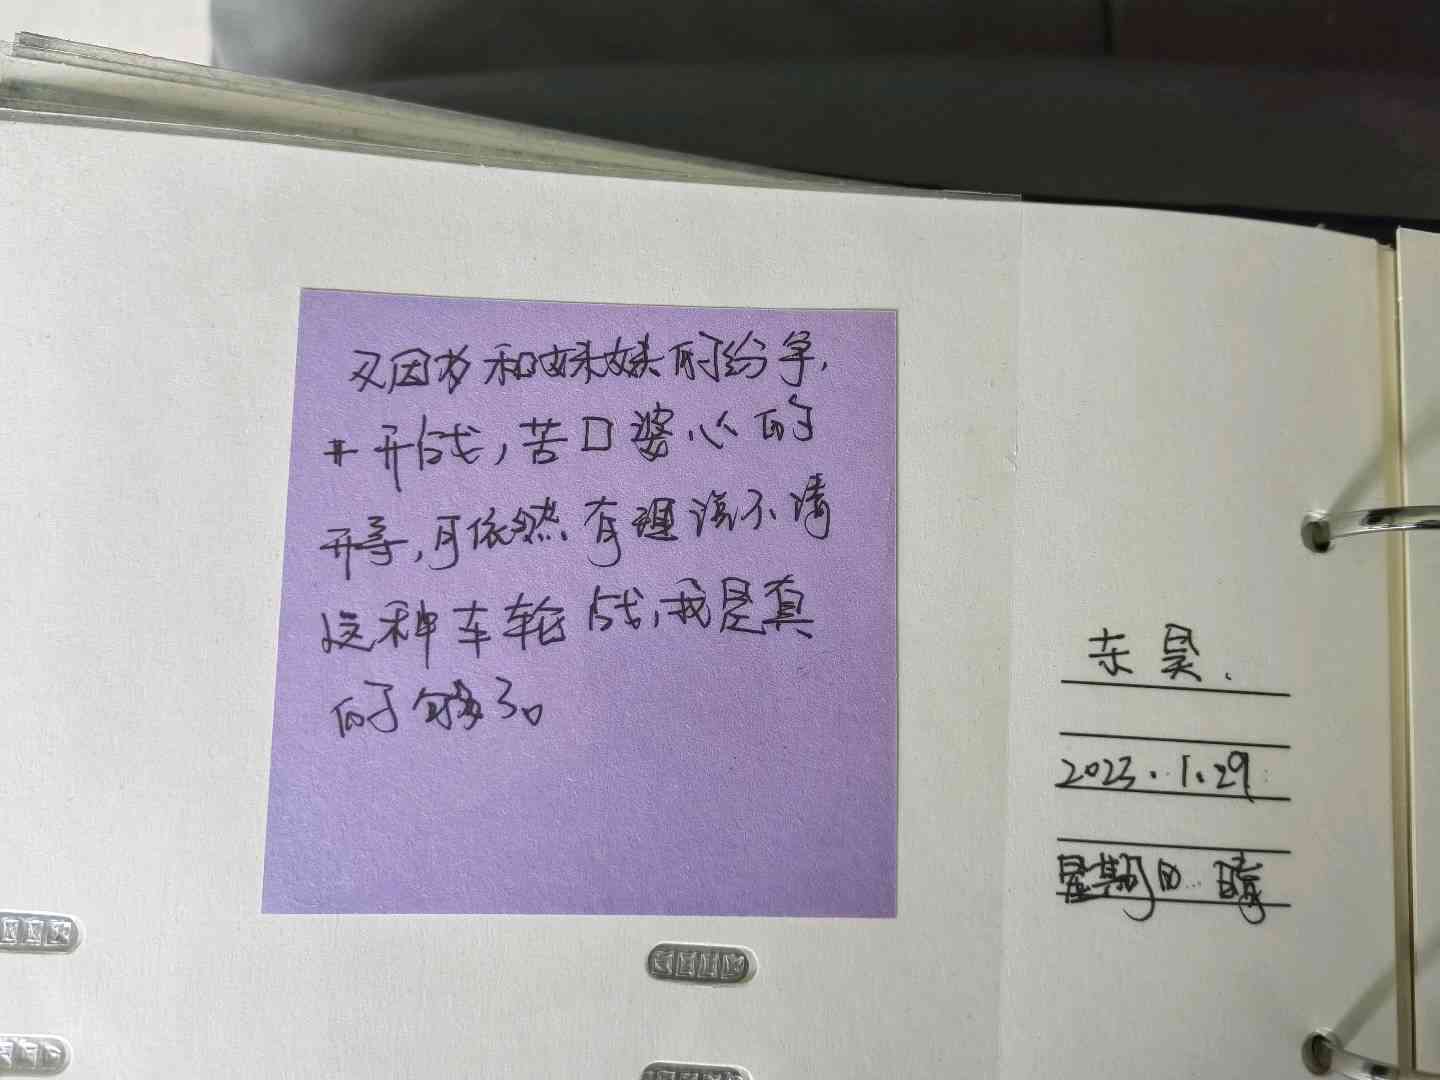 又因为和妹妹的纷争，
开战，苦口婆心的
开导，可依然有理说不清
这种车轮战，我是真
的够了。
东昊.
2023.1.29
星期日 晴